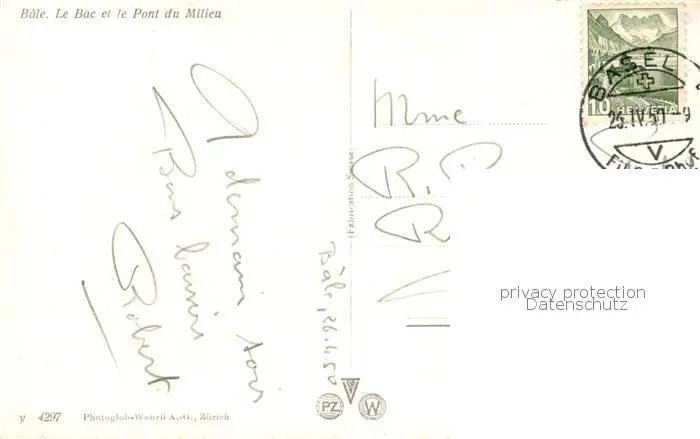 Bâle. Le Bac et le Pont du Milieu
A demain soir
Bons baisers
Robert
Bâle, 26.4.50
(Fabrication Suisse)
Mme
R.
R
BASEL
10 HELVETIA
25.IV.50 - 9
V
privacy protection
Datenschutz
y 4297 Photoglob-Wehrli A.-G., Zürich
PZ W